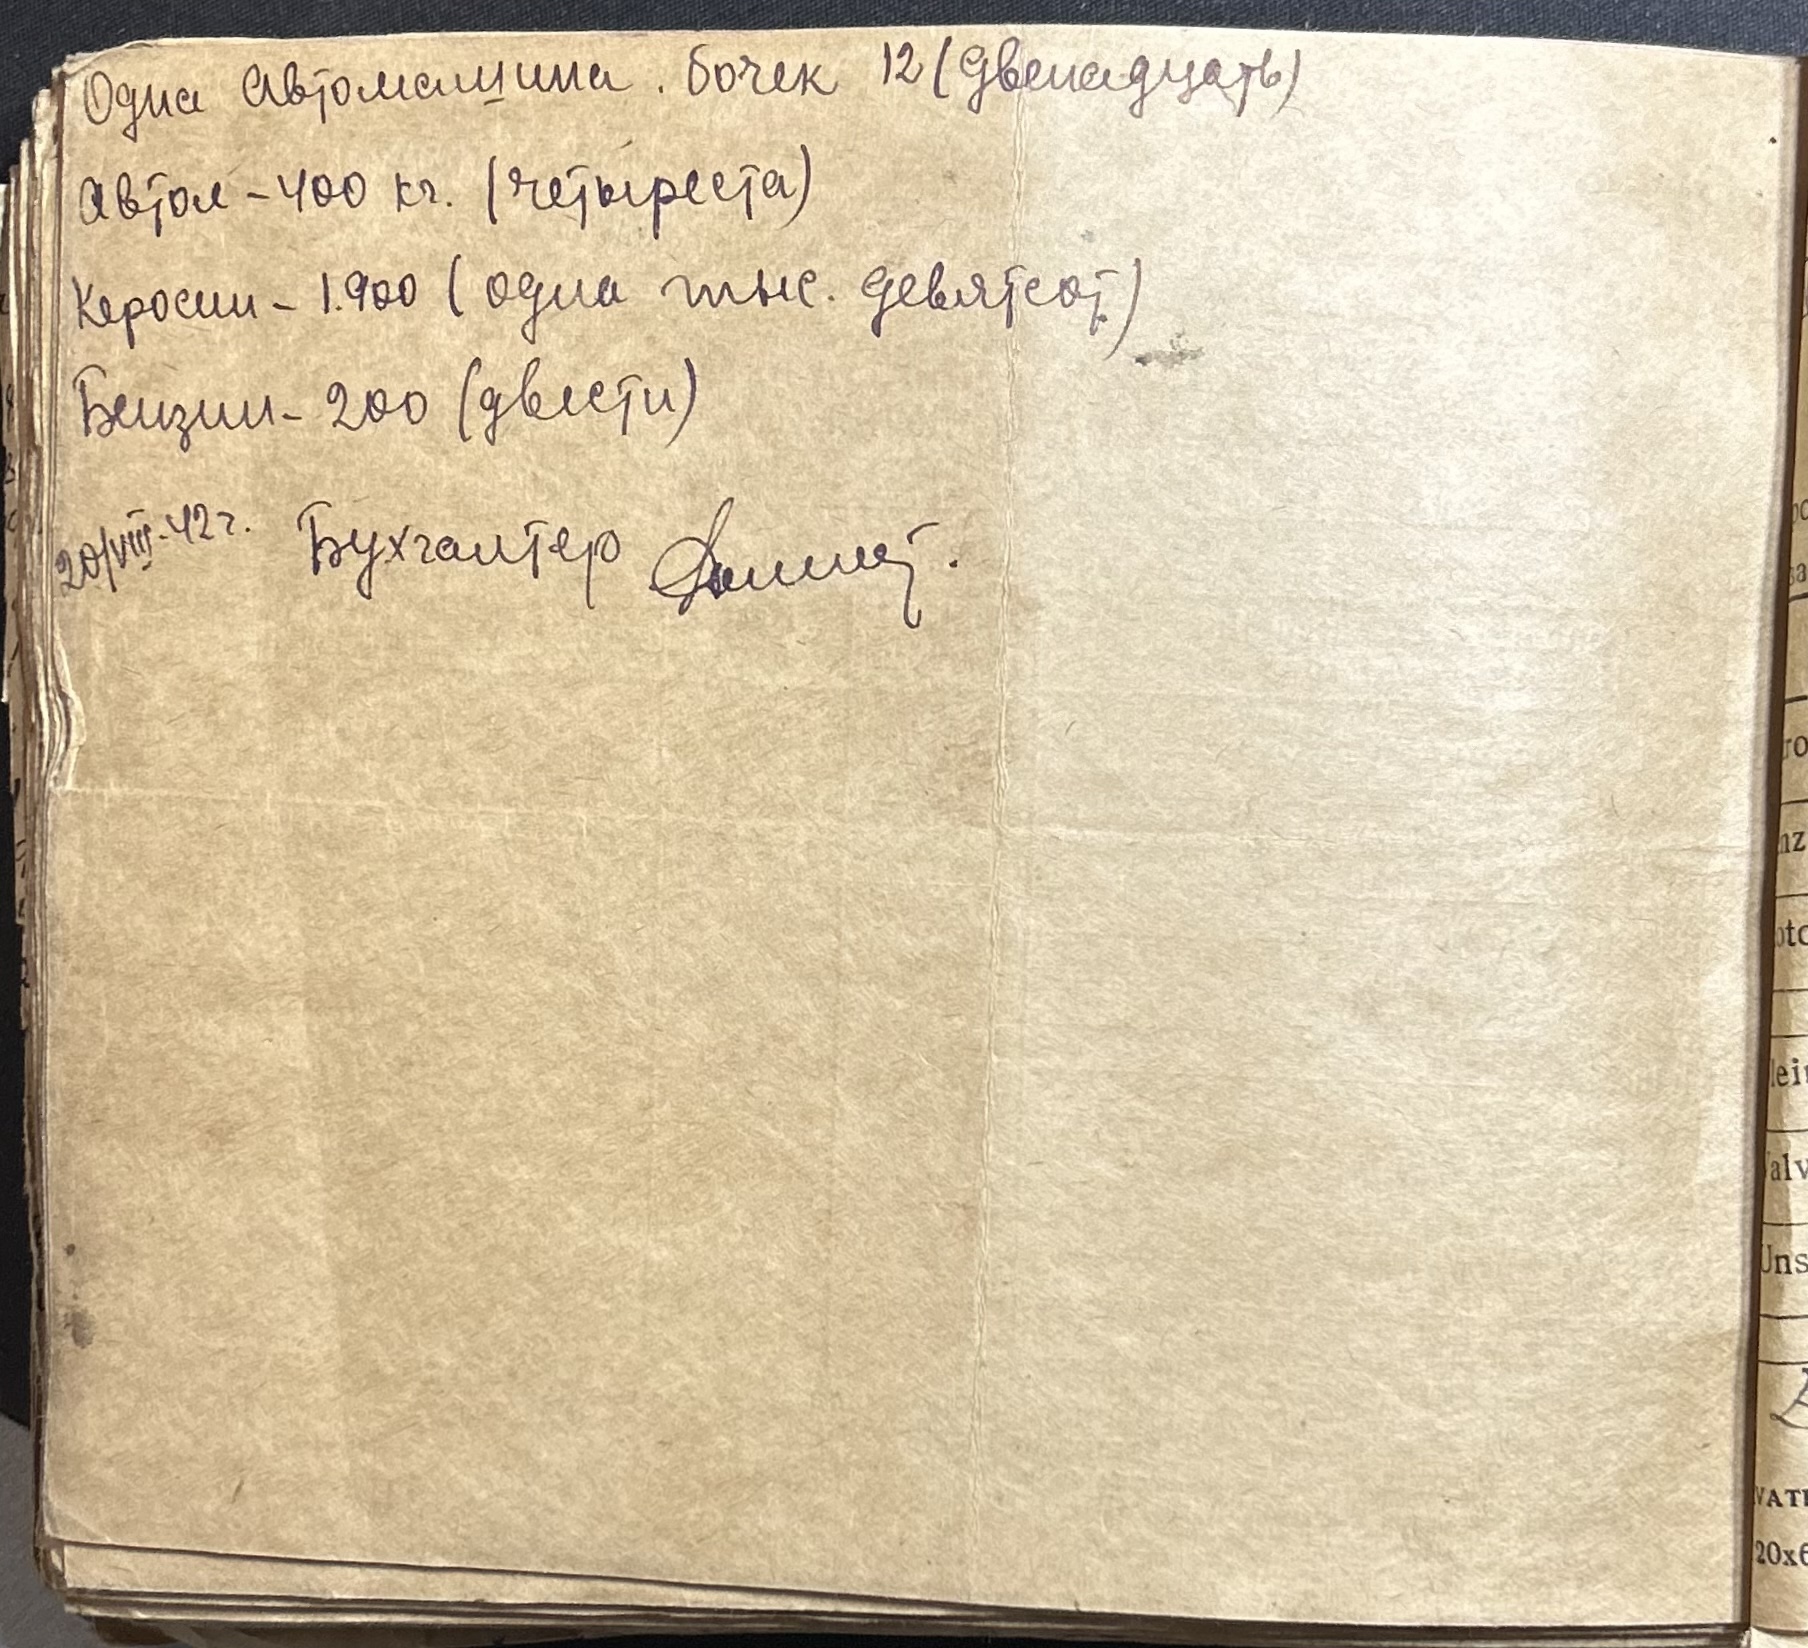 Одна Автомашина. бочек 12 (двенадцать)
Автол – 400 кг. (четыреста)
Керосин – 1.900 (одна тыс. девятсот)
Бензин – 200 (двести)
20/VIII-42 г. Бухгалтер